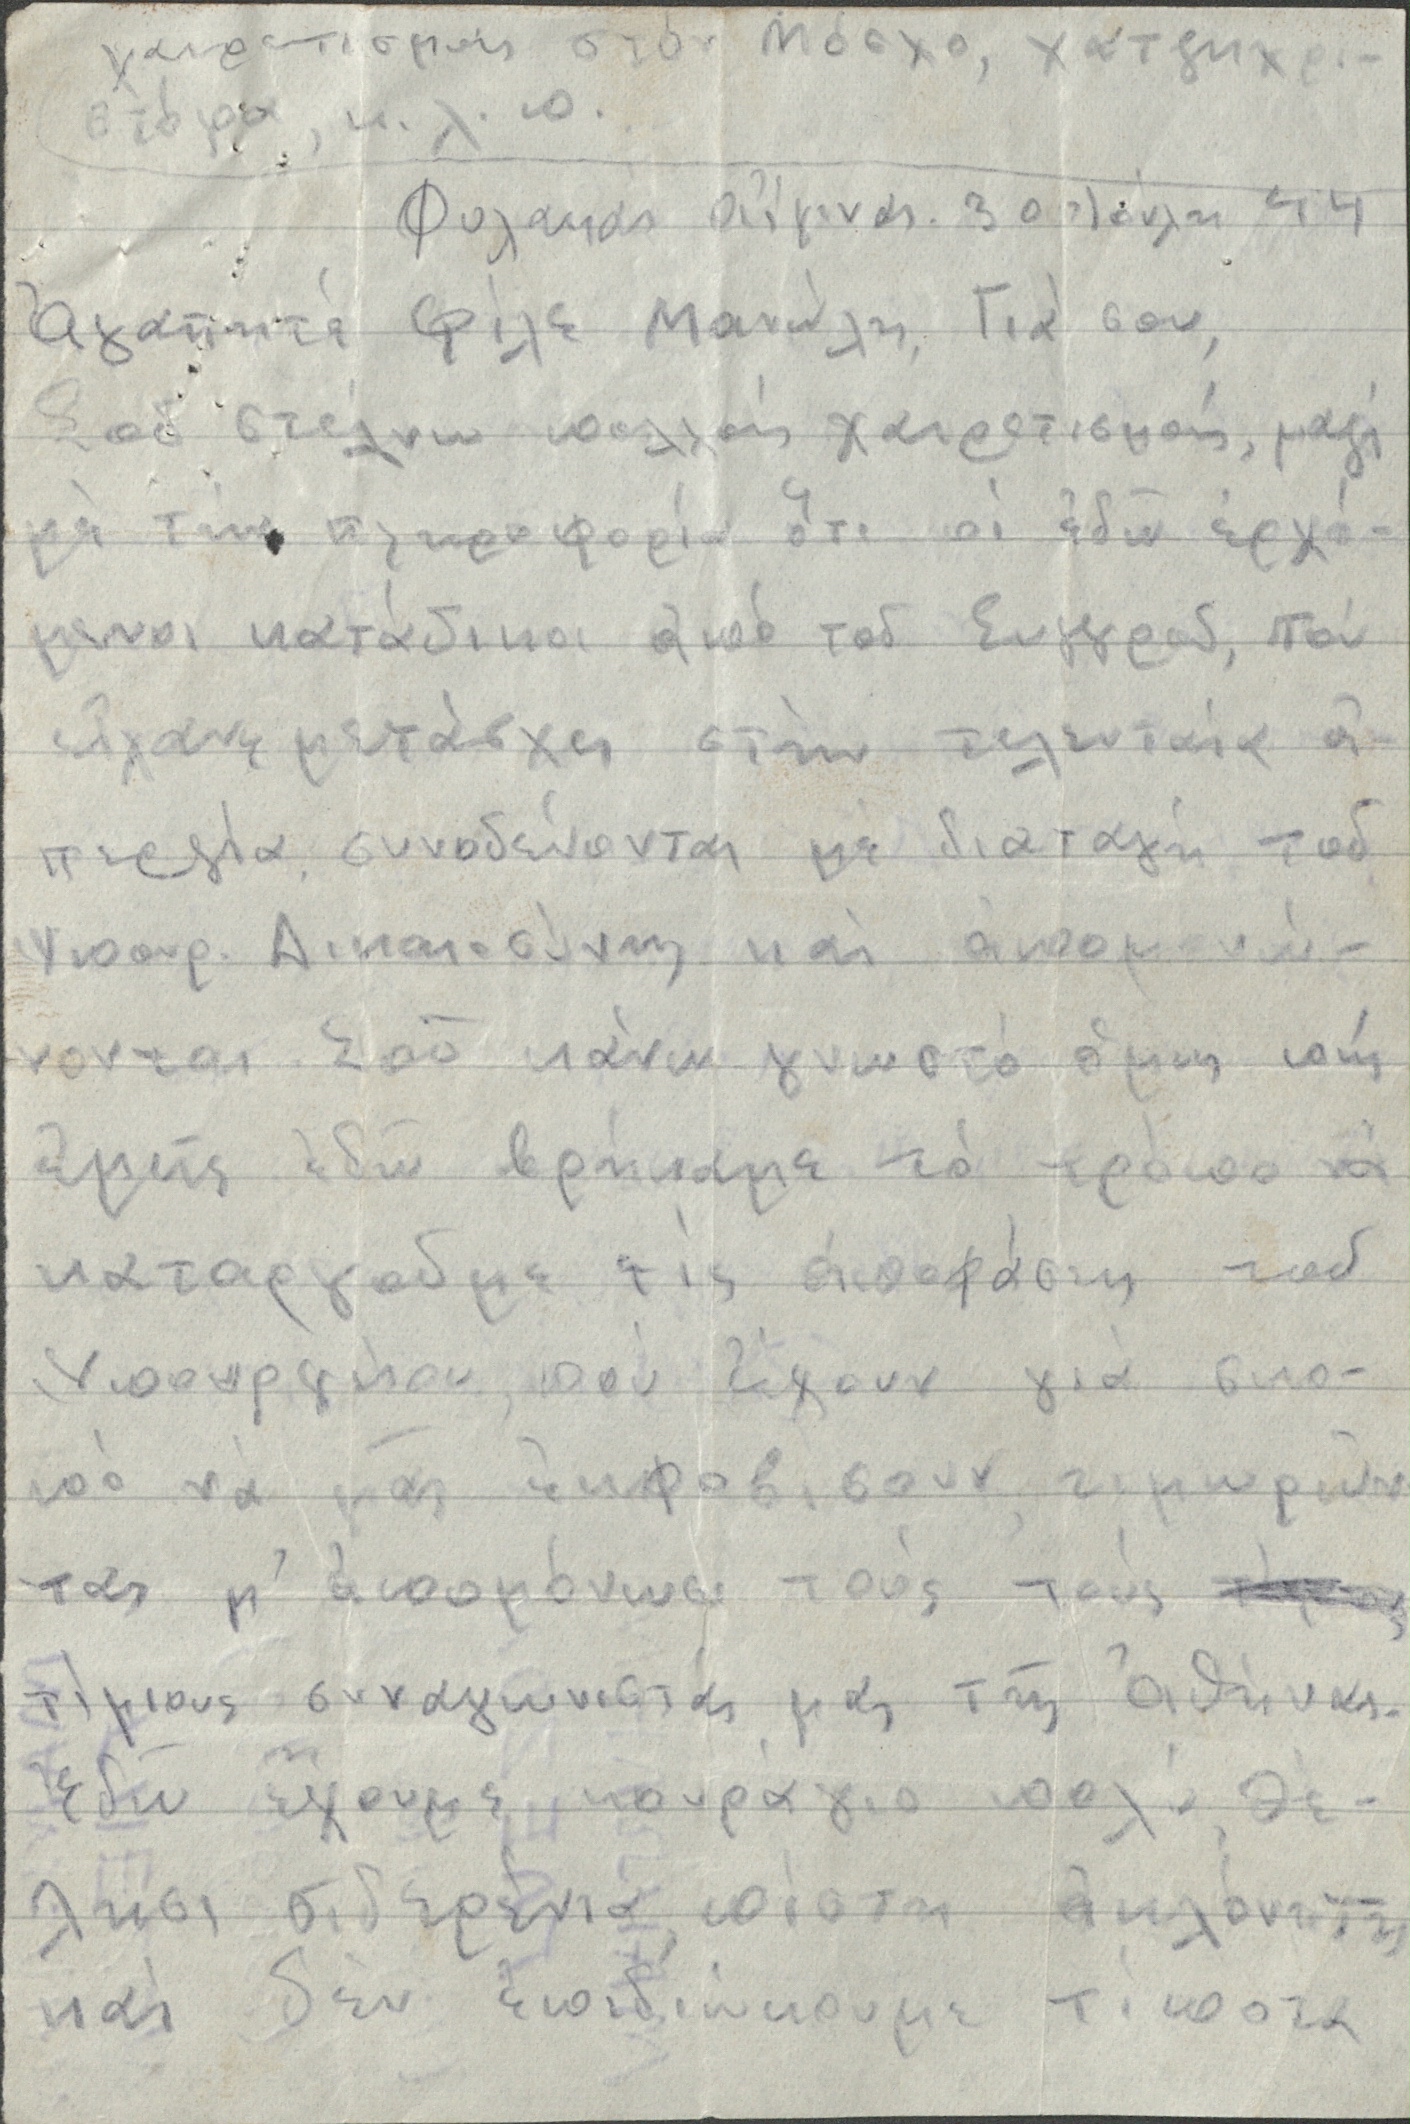 χαιρετισμούς στόν Μόσχο, Χατζηχρι-
στόφα, κ.λ.π.
Φυλακάς Αἰγίνας. 30 Ἰούλη 44
Ἀγαπητέ φίλε Μανώλη, Γιά σου,
Σοῦ στέλνω πολλούς χαιρετισμούς, μαζί
μέ τήν πληροφορία ὅτι οἱ ἐδῶ ἐρχό-
μενοι κατάδικοι ἀπό τοῦ Συγγροῦ, πού
εἴχανε μετάσχει στήν τελευταία ἀ-
περγία, συνοδεύονται μέ διαταγή τοῦ
Ὑπουρ. Δικαιοσύνης καί ἀπομονώ-
νονται. Σοῦ κάνω γνωστό ὅμως πώς
ἐμεῖς ἐδῶ βρήκαμε τό τρόπο νά
καταργοῦμε τίς ἀποφάσεις τοῦ
Ὑπουργείου, πού ἔχουν γιά σκο-
πό νά μᾶς ἐκφοβίσουν, τιμωρών
τας μ' ἀπομόνωσι τούς τούς
τίμιους συναγωνιστάς μας τῆς Ἀθήνας.
Ἐδῶ ἔχουμε κουράγιο πολύ, θέ-
λησι σιδερένια, πίστη ἀκλόνητη
καί δέν ἐπιδιώκουμε τίποτα